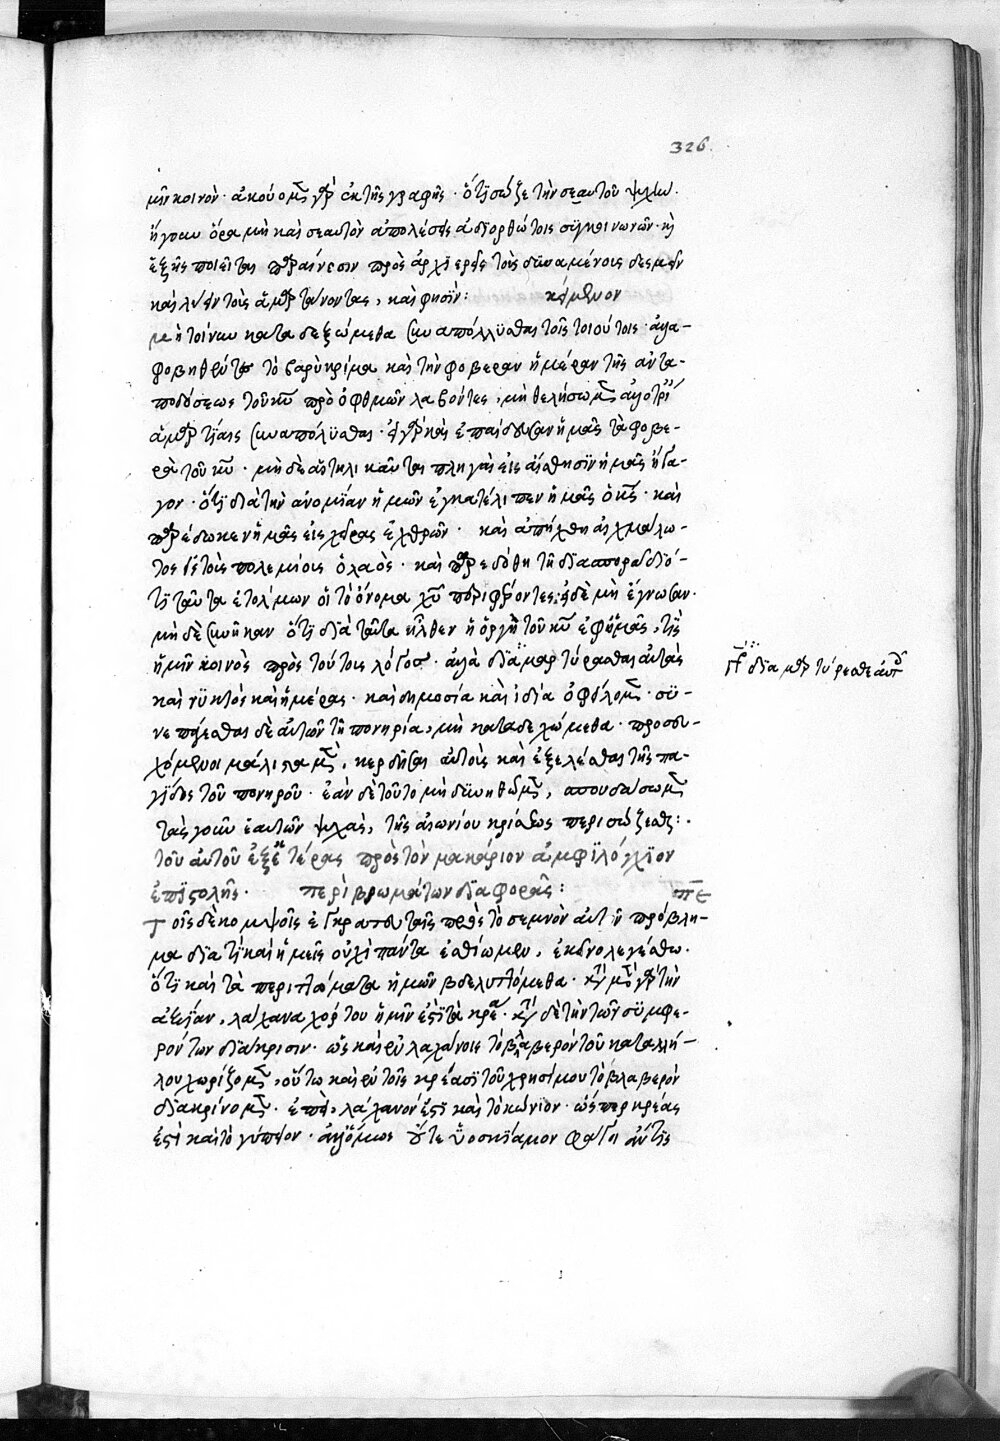 326
μῖν κοινὸν· ἀκούομεν γὰρ ἐκ τῆς γραφῆς· ὅτι σώζε τὴν σεαυτοῦ ψυχήν.
ἤγουν ὅρα μὴ καὶ σεαυτὸν ἀπολέσῃς ἀδιορθώτοις συγκοινωνῶν· καὶ
ἑξῆς ποιεῖται παραίνεσιν πρὸς ἀρχιερεῖς τοὺς δυναμένοις δεσμεῖν
καὶ λύειν τοὺς ἁμαρτάνοντας, καὶ φησίν: κείμενον
μὴ τοίνυν καταδεξώμεθα συναπόλλυσθαι τοῖς τοιούτοις· ἀλλὰ
φοβηθέντες τὸ βαρὺ κρίμα καὶ τὴν φοβερὰν ἡμέραν τῆς ἀντα-
ποδόσεως τοῦ κυ πρὸ ὀφθαλμῶν λαβόντες, μὴ θελήσωμεν ἀλλοτρίαις
ἁμαρτίαις συναπόλυσθαι· εἰ γὰρ καὶ ἐπαίδευσαν ἡμᾶς τὰ φοβε-
ρὰ τοῦ κυ· μὴ δὲ αἱ τηλικαῦται πληγαὶ εἰς αἴσθησιν ἡμᾶς ἤγα-
γον· ὅτι διὰ τὴν ἀνομίαν ἡμῶν ἐγκατέλιπεν ἡμᾶς ὁ κς· καὶ
παρέδωκεν ἡμᾶς εἰς χεῖρας ἐχθρῶν· καὶ ἀπήχθη αἰχμάλω-
τος εἰς τοὺς πολεμίοις ὁ λαός· καὶ παρεδόθη τῇ διασπορᾷ διό-
τι ταῦτα ἐτόλμων οἱ τὸ ὄνομα χυ περιφέροντες· εἰ δὲ μὴ ἔγνωσαν.
μὴ δὲ συνῆκαν ὅτι διὰ ταῦτα ἦλθεν ἡ ὀργὴ τοῦ κυ ἐφ' ἡμᾶς, τίς
ἡμῖν κοινὸς πρὸς τούτοις λόγος· ἀλλὰ διαμαρτύρασθαι αὐτοὺς
καὶ νυκτὸς καὶ ἡμέρας· καὶ δημοσίᾳ καὶ ἰδίᾳ ὀφείλομεν· συ-
νεπάγεσθαι δὲ αὐτῶν τῇ πονηρίᾳ, μὴ καταδεχώμεθα· προσευ-
χόμενοι μάλιστα μὲν, κερδῆσαι αὐτοὺς καὶ ἐξελέσθαι τῆς πα-
γίδος τοῦ πονηροῦ· ἐὰν δὲ τοῦτο μὴ δυνηθῶμεν, σπουδάσωμεν
τὰς γοῦν ἑαυτῶν ψυχὰς, τῆς αἰωνίου κρίσεως περισώζεσθαι:.
τοῦ αὐτοῦ ἐξ ἑτέρας πρὸς τὸν μακάριον ἀμφιλόχιον
ἐπιστολῆς· περὶ βρωμάτων διαφορᾶς: πε
Τοῖς δὲ κομψοῖς ἐγκρατευταῖς πρὸς τὸ σεμνὸν αὐτῶν πρόβλη-
μα διατί καὶ ἡμεῖς οὐχὶ πάντα ἐσθίωμεν, ἐκεῖνο λεγέσθω.
ὅτι καὶ τὰ περιττώματα ἡμῶν βδελυττόμεθα· κατὰ μὲν γὰρ τὴν
ἀξίαν, λάχανα χόρτου ἡμῖν ἐστὶ τὰ κρέα· κατὰ δὲ τὴν τῶν συμφε-
ρόντων διάκρισιν· ὡς καὶ ἐν λαχάνοις τὸ βλαβερὸν τοῦ καταλλή-
λου χωρίζομεν, οὕτω καὶ ἐν τοῖς κρέασι τοῦ χρησίμου τὸ βλαβερὸν
διακρίνομεν· ἐπεὶ, λάχανόν ἐστι καὶ τὸ κώνιον· ὥσπερ κρέας
ἐστὶ καὶ τὸ γύπειον· ἀλλ' ὅμως οὔτε ὑοσκύαμον φάγοι ἄν τις
γρ διαμαρτύρεσθε αὐτοὺς